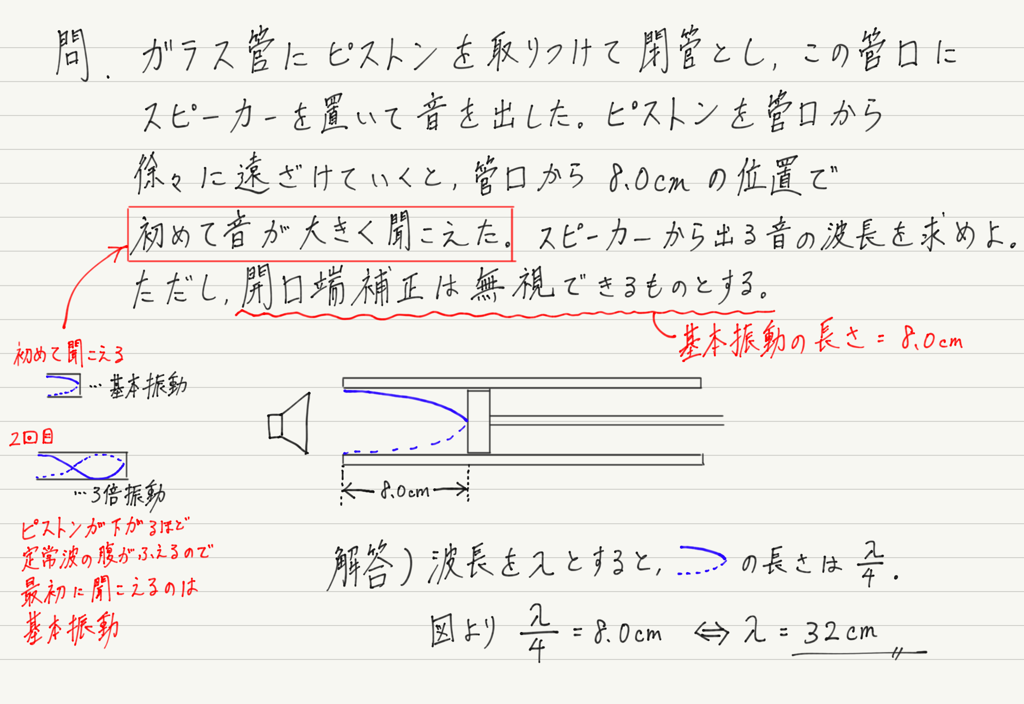 問. ガラス管にピストンを取りつけて閉管とし, この管口に
スピーカーを置いて音を出した。ピストンを管口から
徐々に遠ざけていくと, 管口から 8.0cm の位置で
初めて音が大きく聞こえた。スピーカーから出る音の波長を求めよ。
ただし, 開口端補正は無視できるものとする。
基本振動の長さ = 8.0cm
初めて聞こえる
… 基本振動
2回目
… 3倍振動
ピストンが下がるほど
定常波の腹がふえるので
最初に聞こえるのは
基本振動
8.0cm
解答) 波長をλとすると, の長さは λ/4.
図より λ/4 = 8.0cm ⇔ λ = 32cm